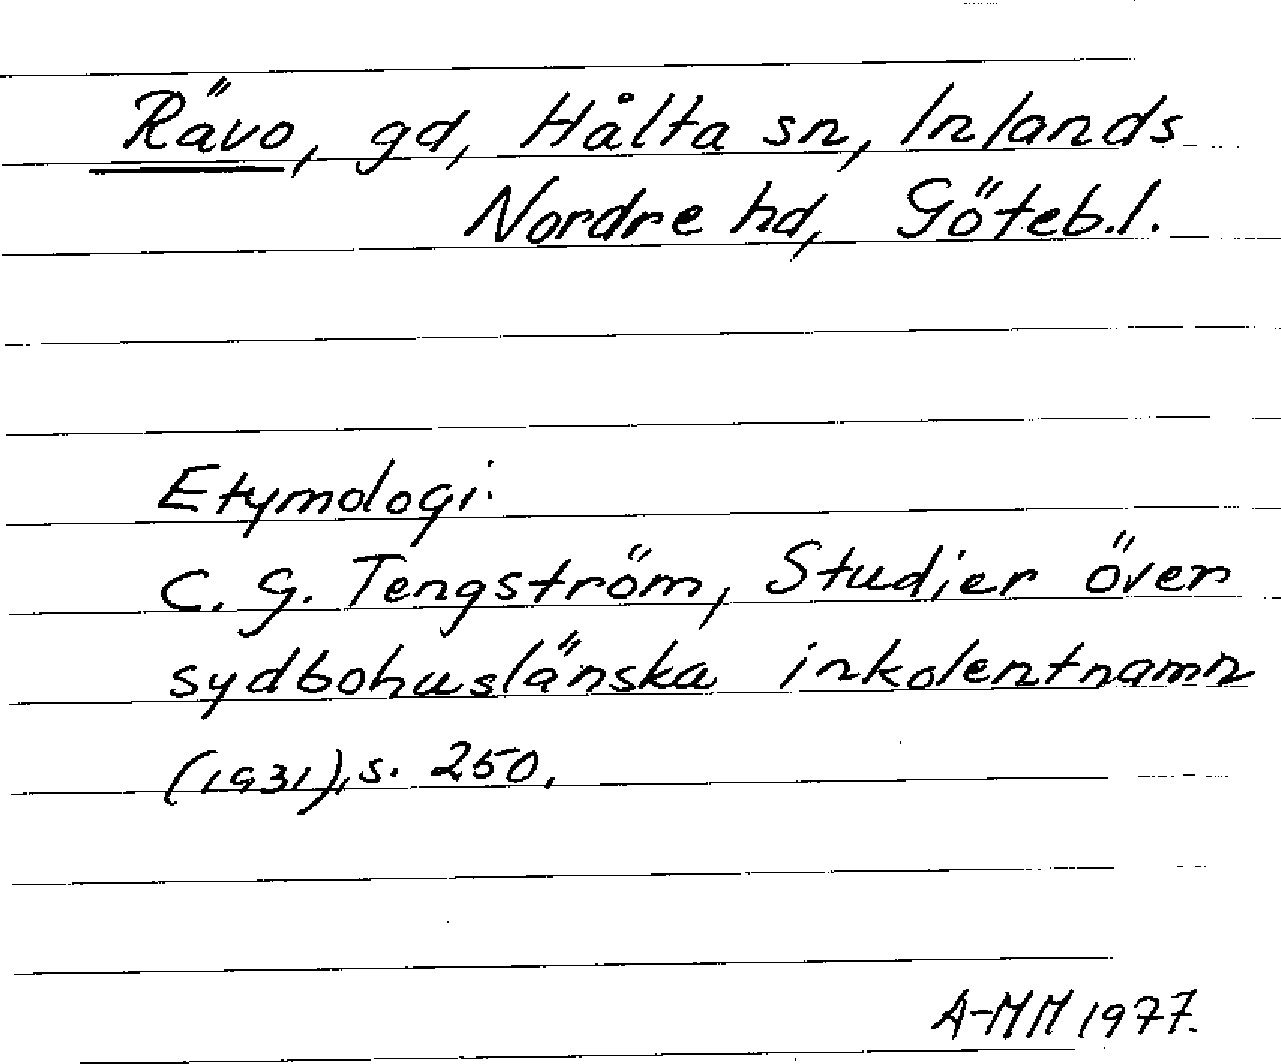 Rävo, gd, Hålta sn, Inlands
Nordre hd, Göteb.l.
Etymologi:
C. G. Tengström, Studier över
sydbohuslänska inkolentnamn
(1931), s. 250.
A-MM 1977.